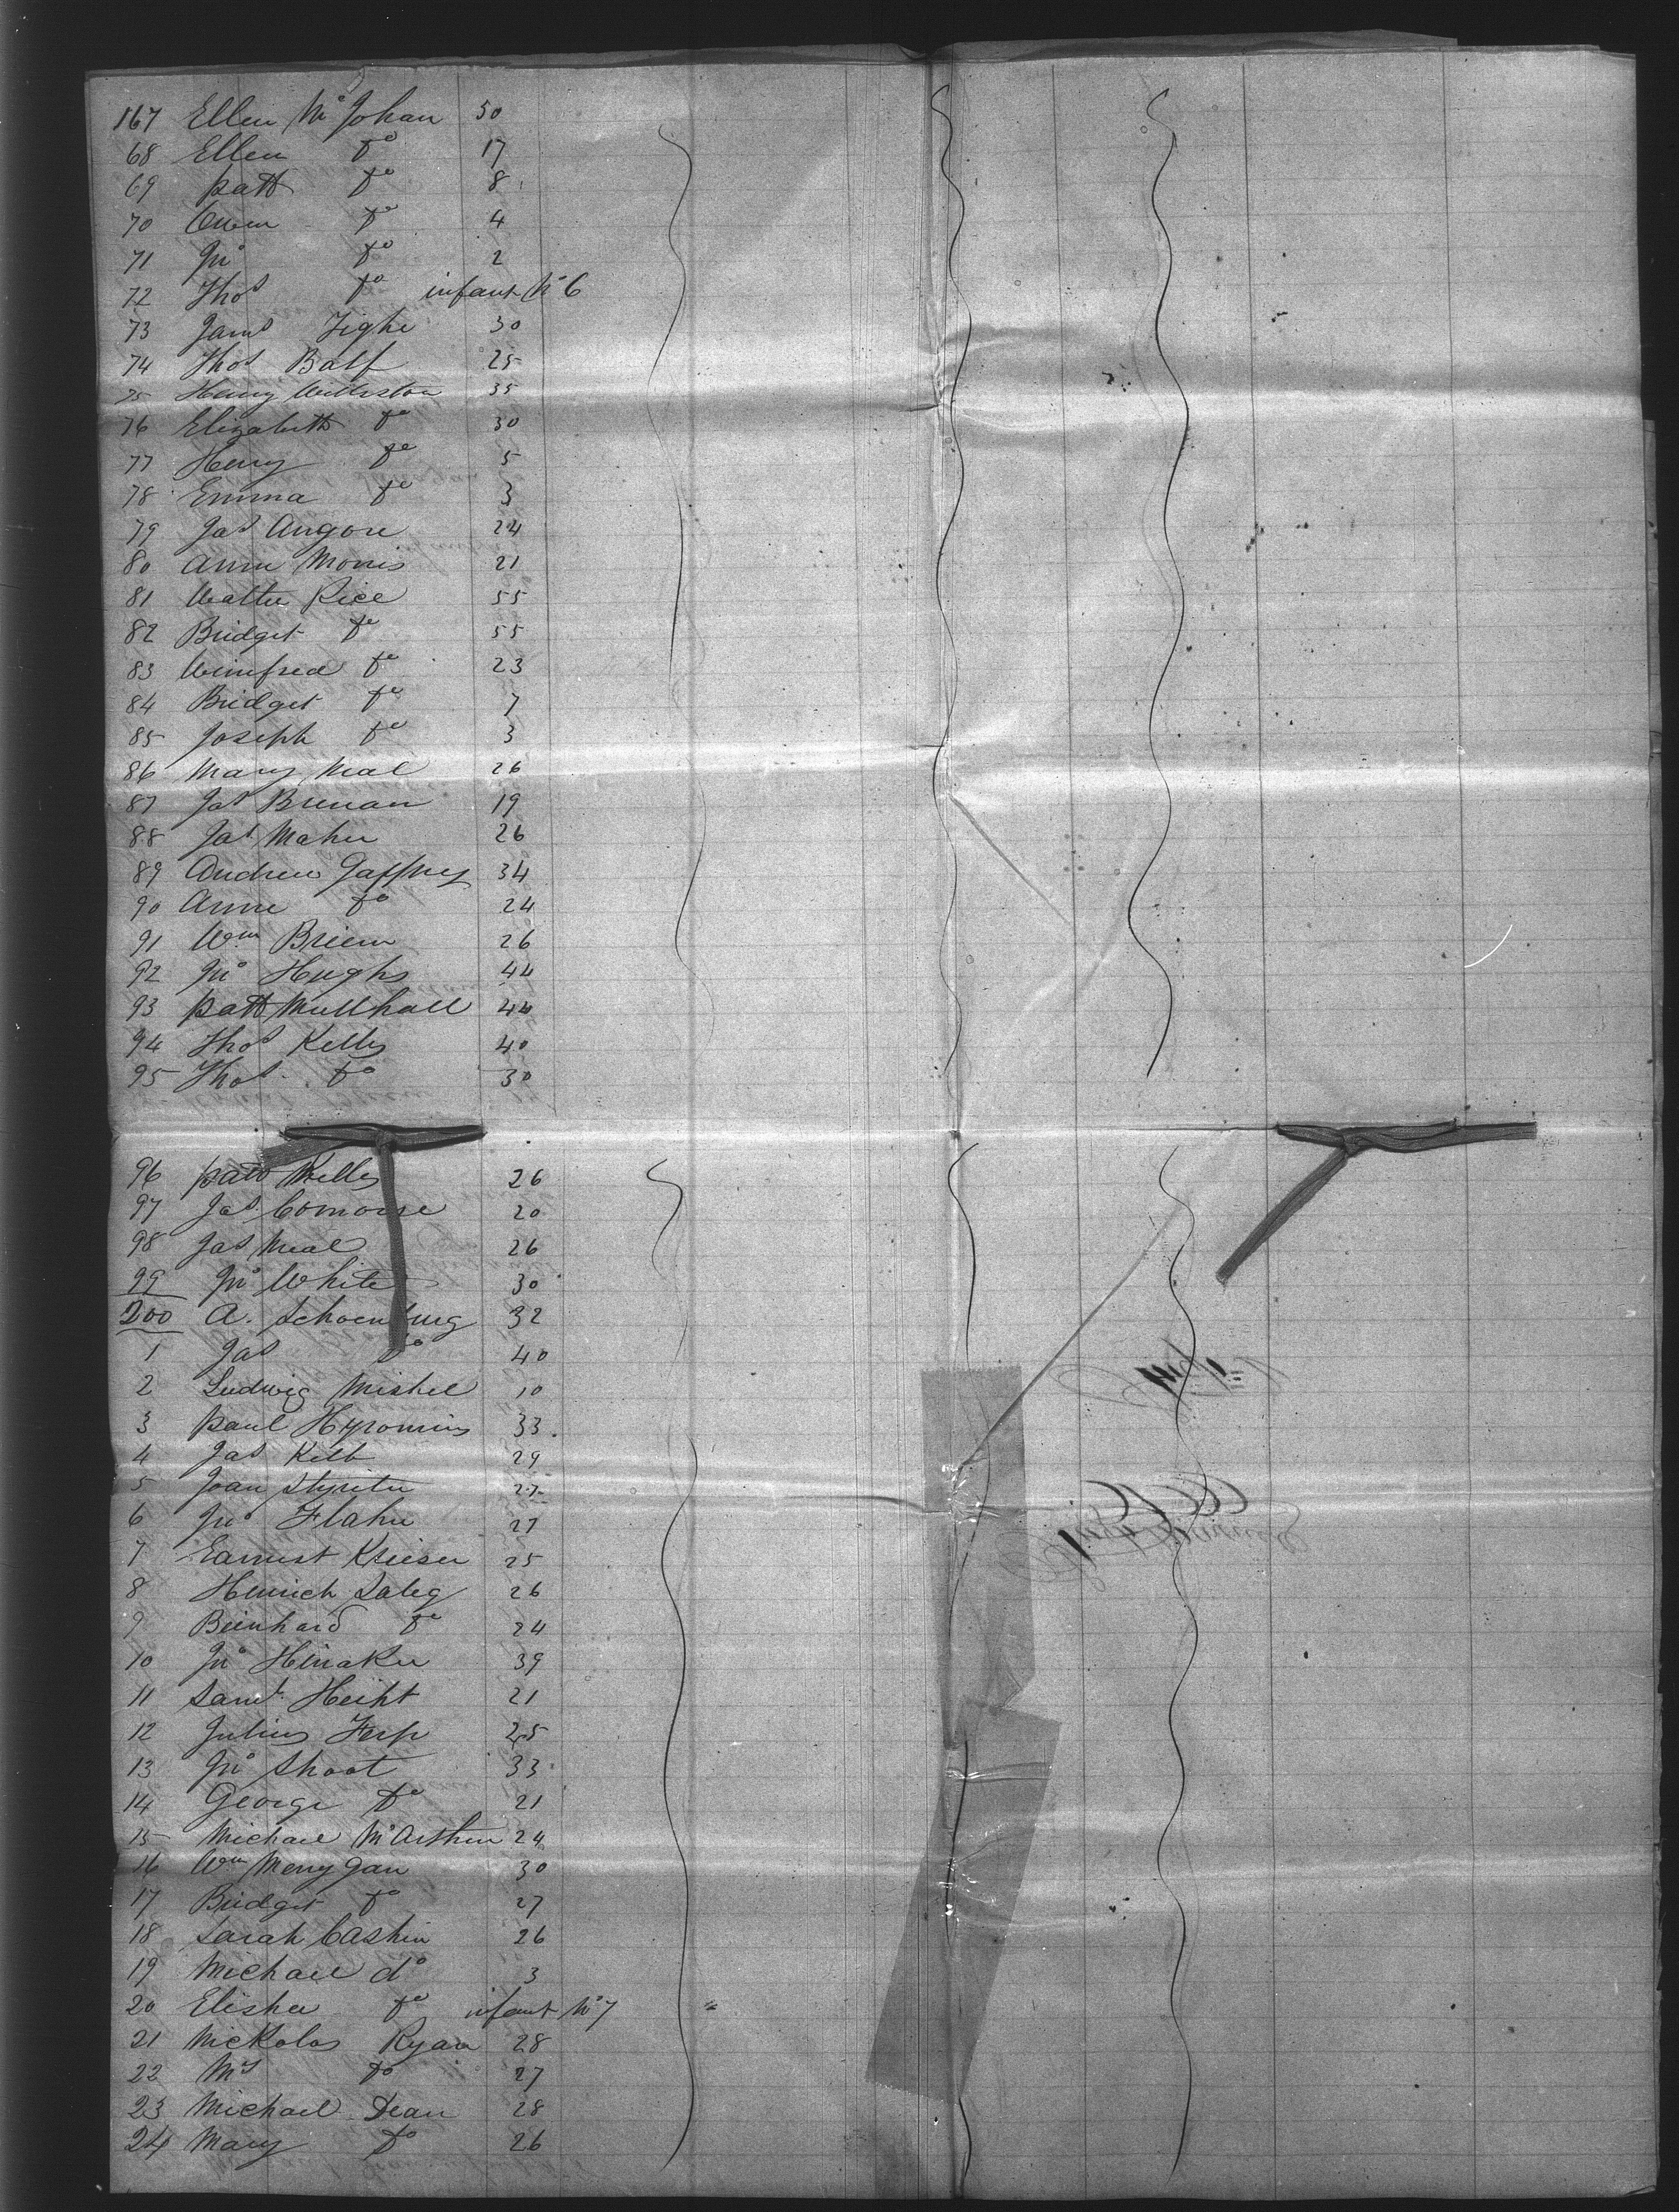 167 Ellen McGohan 50
68 Ellen Do 17
69 Patt Do 8
70 Owen Do 4
71 Jno Do 2
72 Thos Do infant No 6
73 Jams Tighe 30
74 Thos Balf 25
75 Henry Willeston 35
76 Elizabeth Do 30
77 Henry Do 5
78 Emma Do 3
79 Jas Angore 24
80 Anne Morris 21
81 Walter Rice 55
82 Bridget Do 55
83 Winifred Do 23
84 Bridget Do 7
85 Joseph Do 3
86 Mary Neal 26
87 Jas Brenan 19
88 Jas Maher 26
89 Andrew Gaffney 34
90 Anne Do 24
91 Wm Brien 26
92 Jno Hughs 44
93 Patt Mullhall 40
94 Thos Kelly 40
95 Thos Do 30
96 Patt Kelly 26
97 Jas 20
98 Jas Neal 26
99 Jno White 30
200 A. Schoenburg 32
1 Jas Do 40
2 Ludwig Mishel 10
3 Paul 33
4 Jas Kelb 29
5 Joan 27
6 Jno Flaher 27
7 Earnest Krieser 25
8 Heinrich Saleg 26
9 Beinhard Do 24
10 Jno Heinaker 39
11 Saml Heiht 21
12 Julius 25
13 Jno Shoot 33
14 George Do 21
15 Michael McArthur 24
16 Wm Merrygan 30
17 Bridget Do 27
18 Sarah Cashin 26
19 Michael do 3
20 Elisha Do infant No 7
21 Nickolas Ryan 28
22 Mrs Do 27
23 Michael Dean 28
24 Mary Do 26